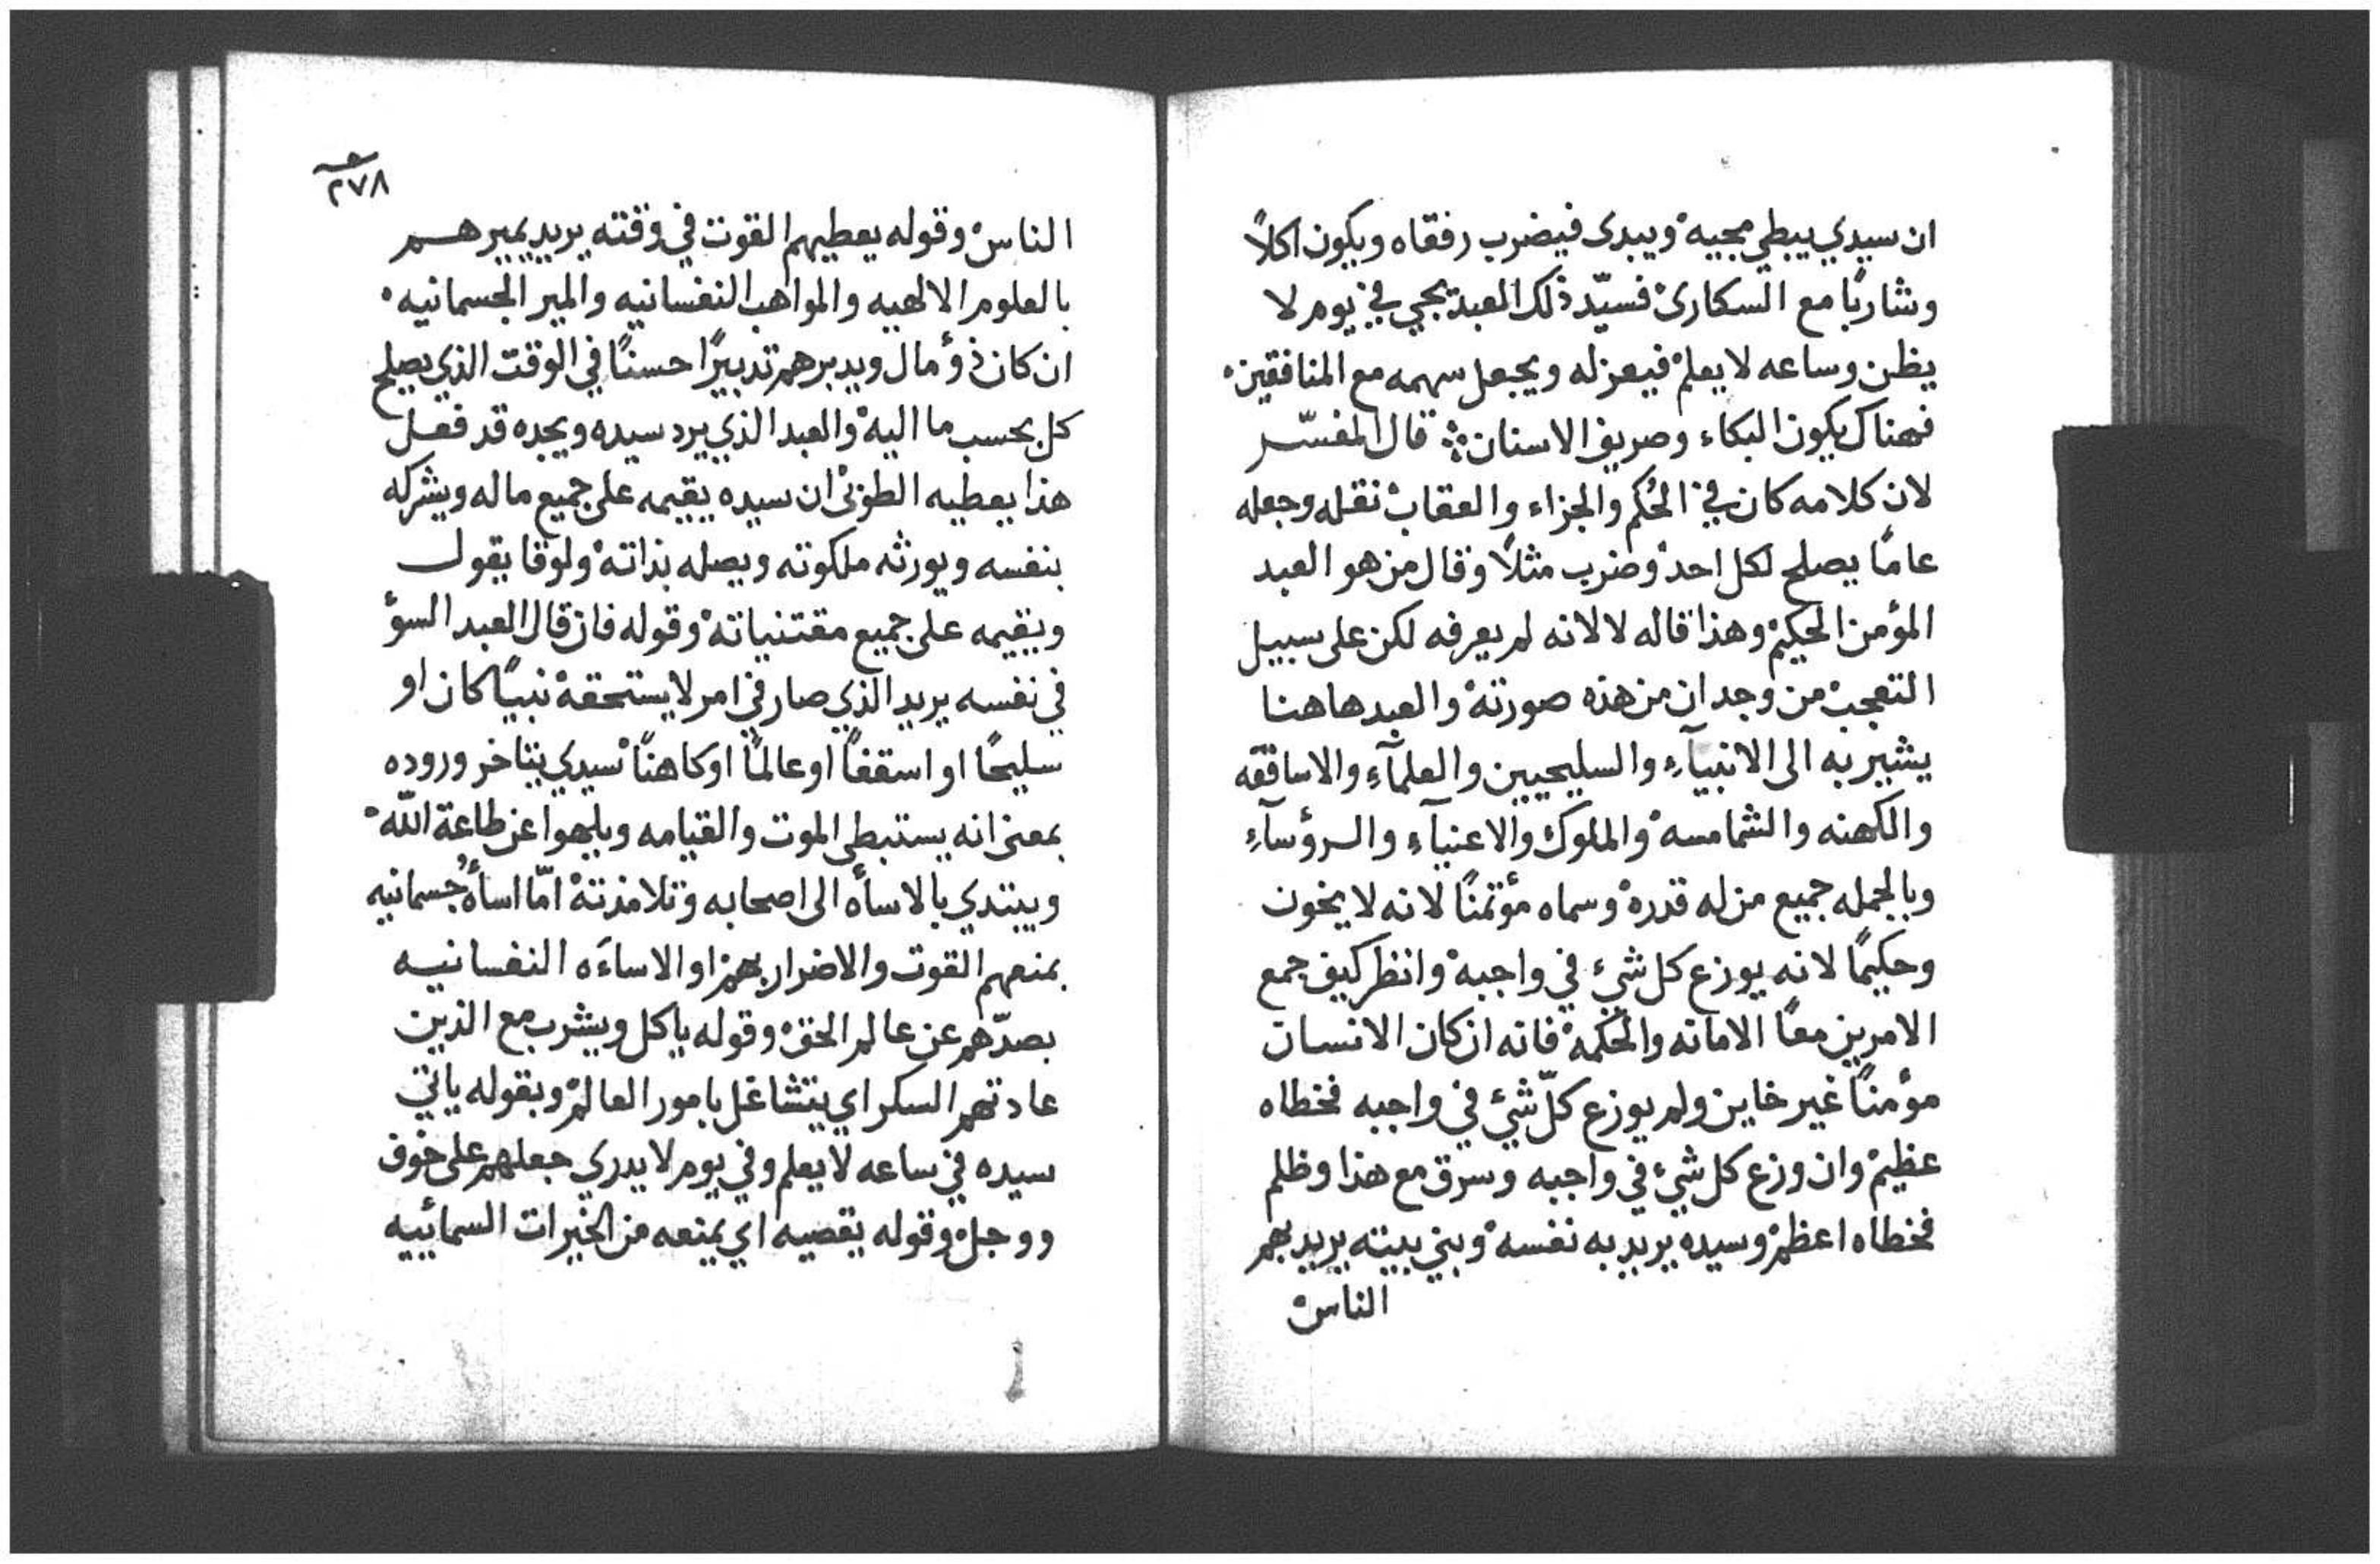 ان سيدي يبطي مجيه ويبدى فيضرب رفقاه ويكون اكلاً
وشاربًا مع السكارى فسيّد ذلك العبد يجي في يوم لا
يظن وساعه لا يعلم فيعزله ويجعل سهمه مع المنافقين
فهناك يكون البكاء وصريف الاسنان قال المفسّر
لان كلامه كان في الحُكم والجزاء والعقاب نقله وجعله
عامًا يصلح لكل احد وضرب مثلاً وقال من هو العبد
المؤمن الحكيم وهذا قاله لا لانه لم يعرفه لكن على سبيل
التعجب من وجدان من هذه صورته والعبد هاهنا
يشير به الى الانبيآء والسليحيين والعلمآء والاساقفه
والكهنه والشمامسه والملوك والاغنيآء والرؤسآء
وبالجمله جميع من له قدره وسماه مؤتمنًا لانه لا يخون
وحكيمًا لانه يوزع كل شيء في واجبه وانظر كيف جمع
الامرين معًا الامانه والحكمه فانه ان كان الانسان
مؤمنًا غير خاين ولم يوزع كلّ شيء في واجبه فخطاه
عظيم وان وزع كل شيء في واجبه وسرق مع هذا وظلم
فخطاه اعظم وسيده يريد به نفسه وبني بيته يريد بهم
الناس
٢٧٨
الناس وقوله يعطيهم القوت في وقته يريد يميرهم
بالعلوم الالهيه والمواهب النفسانيه والمير الجسمانيه
ان كان ذو مال ويدبرهم تدبيرًا حسنًا في الوقت الذي يصلح
كل بحسب ما اليه والعبد الذي يرد سيده ويجده قد فعل
هذا يعطيه الطوبى ان سيده يقيمه على جميع ماله ويشركه
بنفسه ويورثه ملكوته ويصله بذاته ولوقا يقول
ويقيمه على جميع مقتنياته وقوله فان قال العبد السؤ
في نفسه يريد الذي صار في امر لا يستحقه نبيًا كان او
سليحًا او اسقفًا او عالمًا او كاهنًا سيدي يتاخر وروده
بمعنى انه يستبطي الموت والقيامه ويلهوا عن طاعة اللّه
ويبتدي بالاسأه الى اصحابه وتلامذته امّا اسأةُ جسمانيه
بمنعهم القوت والاضرار بهم او الاساءه النفسانيه
بصدّهم عن عالم الحق وقوله ياكل ويشرب مع الذين
عادتهم السكر اي يتشاغل بامور العالم وبقوله ياتي
سيده في ساعه لا يعلم وفي يوم لا يدري جعلهم على خوف
ووجل وقوله يقصيه اي يمنعه من الخيرات السمائييه